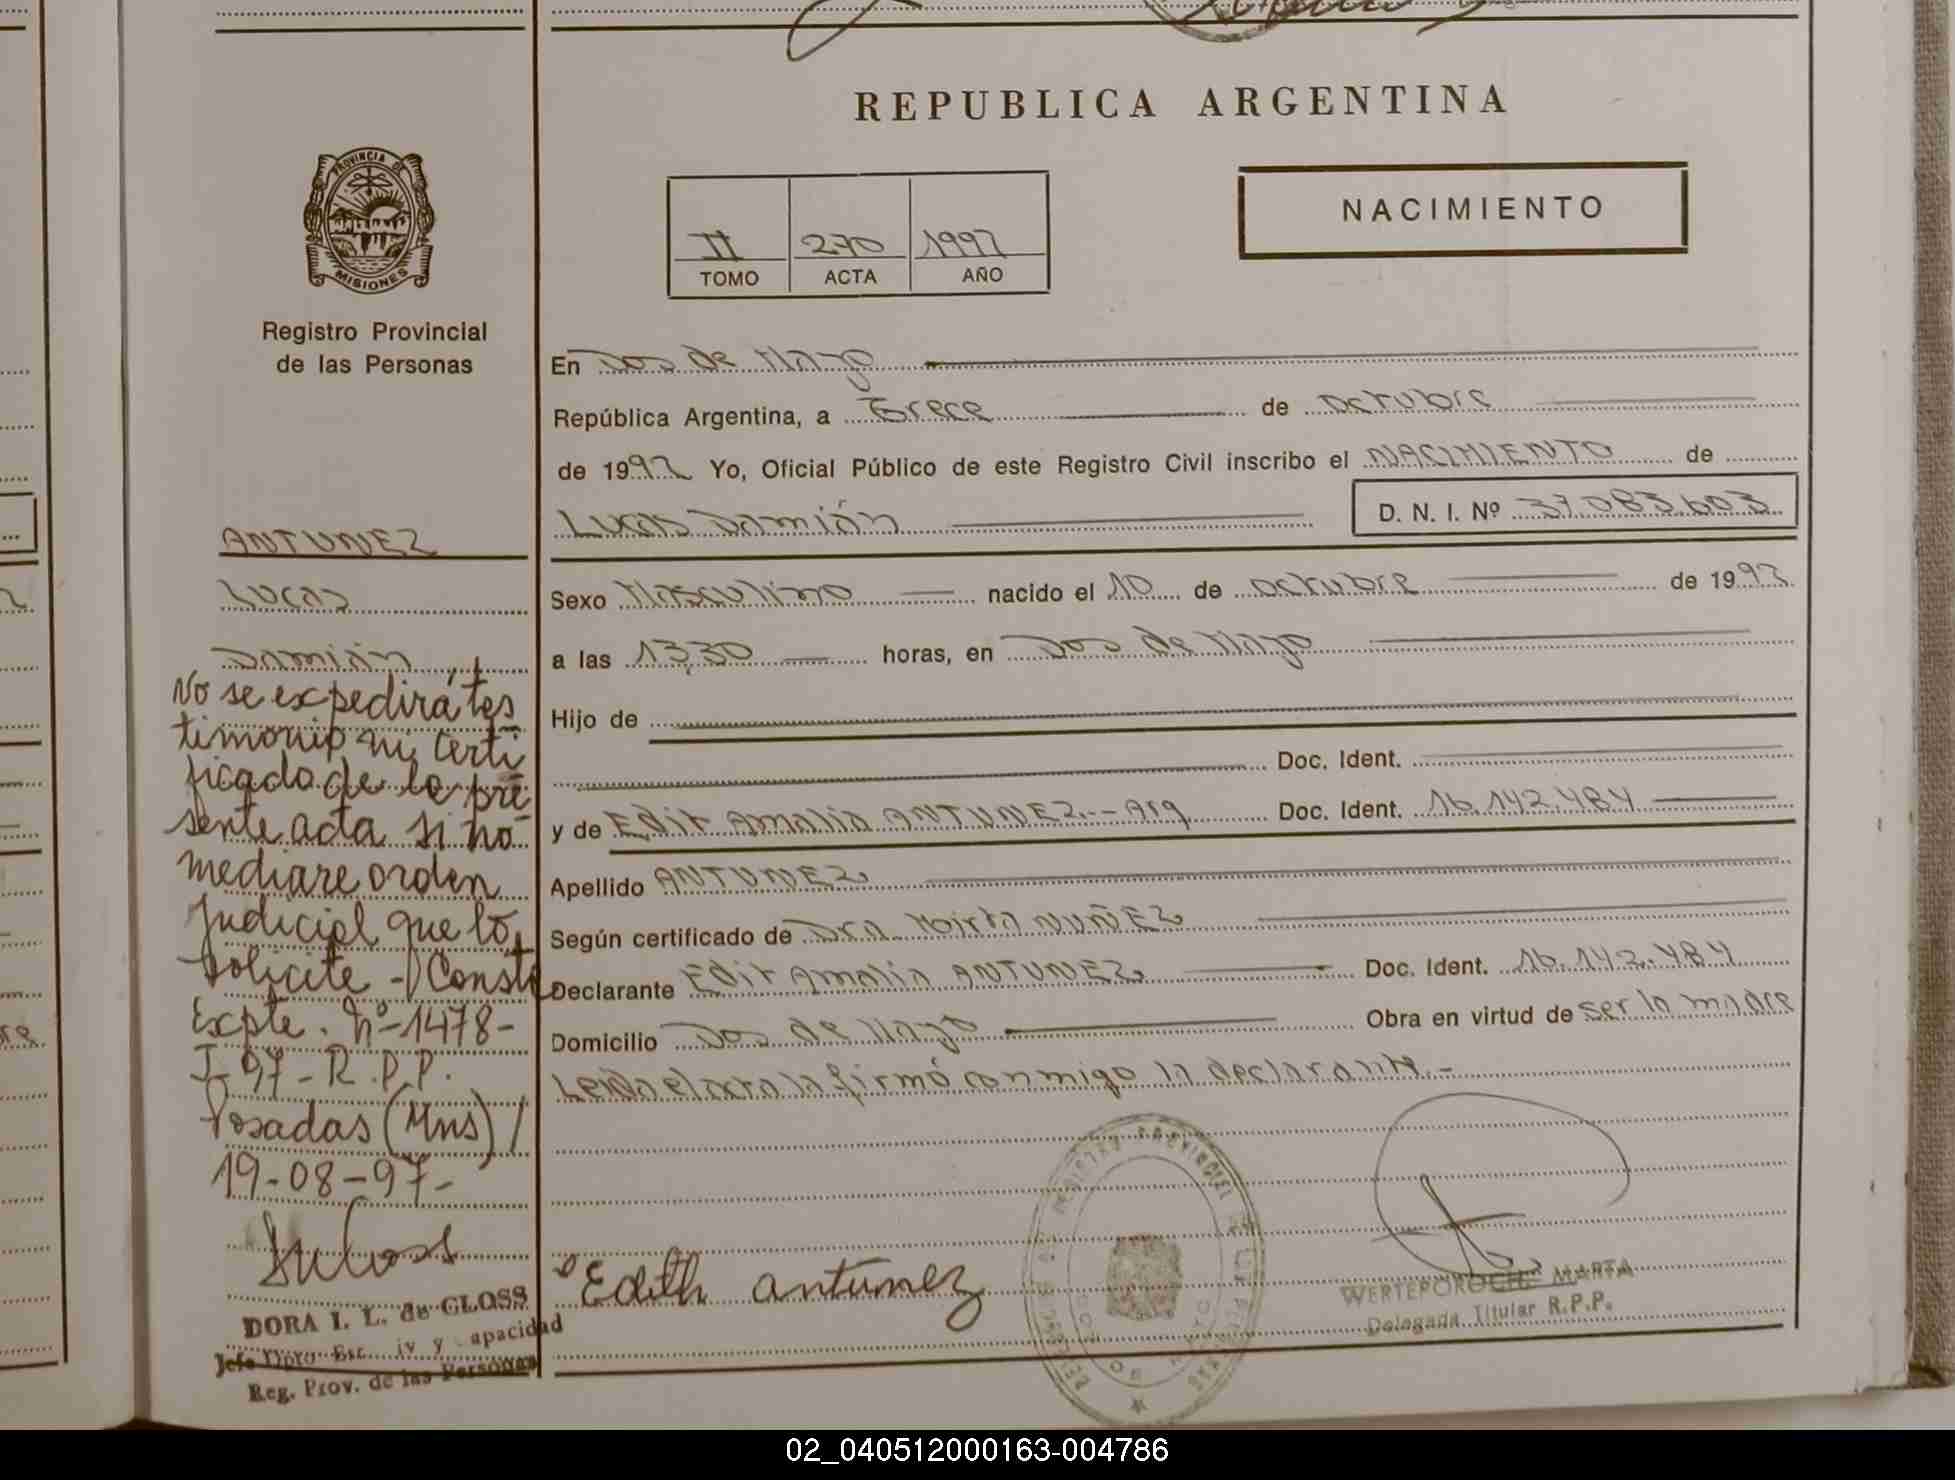 REPUBLICA ARGENTINA
PROVINCIA DE
MISIONES
Registro Provincial
de las Personas
NACIMIENTO
II 270 1992
TOMO ACTA AÑO
En Dos de Mayo
República Argentina, a Trece de octubre
de 1992 Yo, Oficial Público de este Registro Civil inscribo el NACIMIENTO de
Lucas Damián D. N. I. Nº 37.083.603
Sexo Masculino nacido el 10 de octubre de 1992
a las 13,30 horas, en Dos de Mayo
Hijo de
Doc. Ident.
y de Edit Amalia ANTUNEZ.-- Arg Doc. Ident. 16.142.484
Apellido ANTUNEZ
Según certificado de Dra. Mirta NUÑEZ
Declarante Edit Amalia ANTUNEZ Doc. Ident. 16.142.484
Domicilio Dos de Mayo Obra en virtud de ser la madre
Leida el acta la firmó conmigo la declarante.-
Edith antunez
WERTEPOROCH MARTA
Delegada Titular R.P.P.
ANTUNEZ
Lucas
Damián
No se expedirá tes
timonio ni certi
ficado de la pre
sente acta si no
mediare orden
Judicial que lo
solicite - Consta
Expte. Nº-1478-
J-97-R.P.P.
Posadas (Mns) /
19-08-97-
DORA I. L. de GLOSS
Jefe Dpto Esc. iv y apacidad
Reg. Prov. de las Personas
02_040512000163-004786